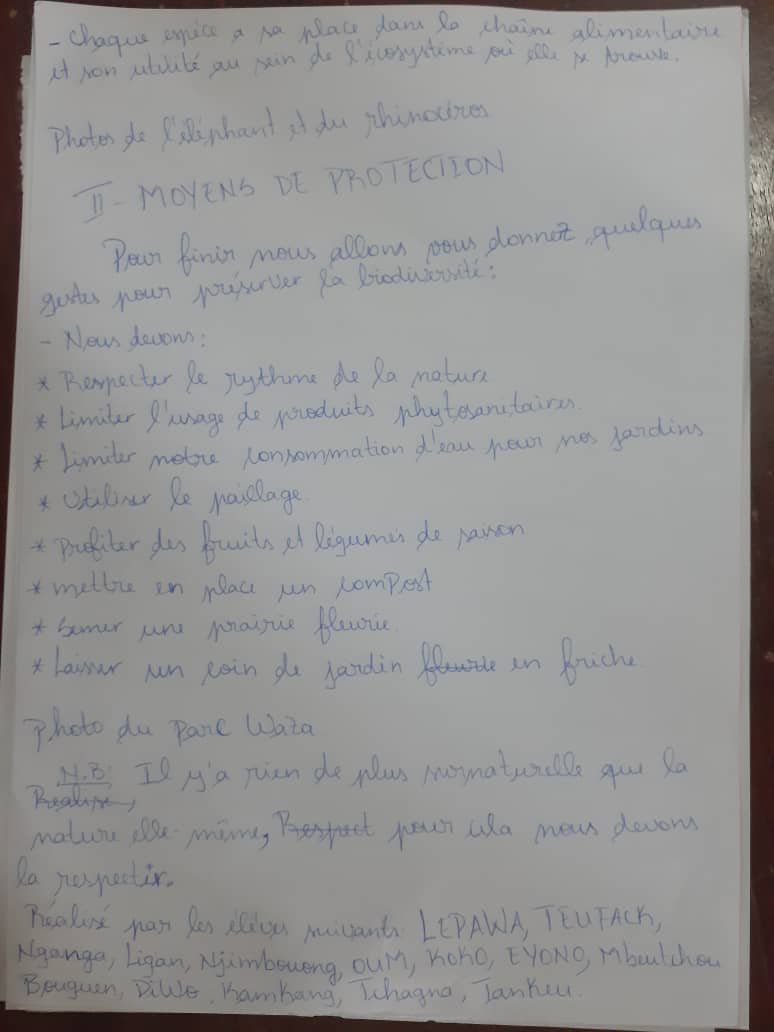 - Chaque espèce a sa place dans la chaîne alimentaire
et son utilité au sein de l'écosystème où elle se trouve.
Photos de l'éléphant et du rhinocéros
II - MOYENS DE PROTECTION
Pour finir nous allons vous donnez quelques
gestes pour préserver la biodiversité :
- Nous devons :
* Respecter le rythme de la nature
* Limiter l'usage de produits phytosanitaires.
* Limiter notre consommation d'eau pour nos jardins
* Utiliser le paillage.
* Profiter des fruits et légumes de saison
* mettre en place un comPost
* Semer une prairie fleurie.
* Laisser un coin de jardin fleurie en friche.
Photo du Parc Waza
N.B: Il y'a rien de plus surnaturelle que la
Réalise,
nature elle-même, Respect pour cela nous devons
la respectir.
Réalisé par les élèves suivants : LEPAWA, TEUFACK,
Nganga, Ligan, Njimbouong, OUM, KOKO, EYONO, Mbeutchou
Bouguen, DiWo, Kamkang, Tchagna, Tankeu.